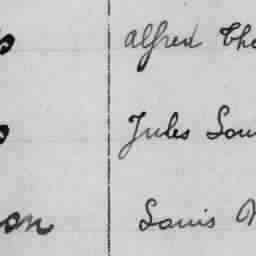 s alfred Cha
s Jules Lou
on Louis